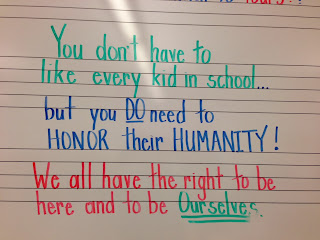 You don't have to
like every kid in school...
but you DO need to
HONOR their HUMANITY!
We all have the right to be
here and to be Ourselves.